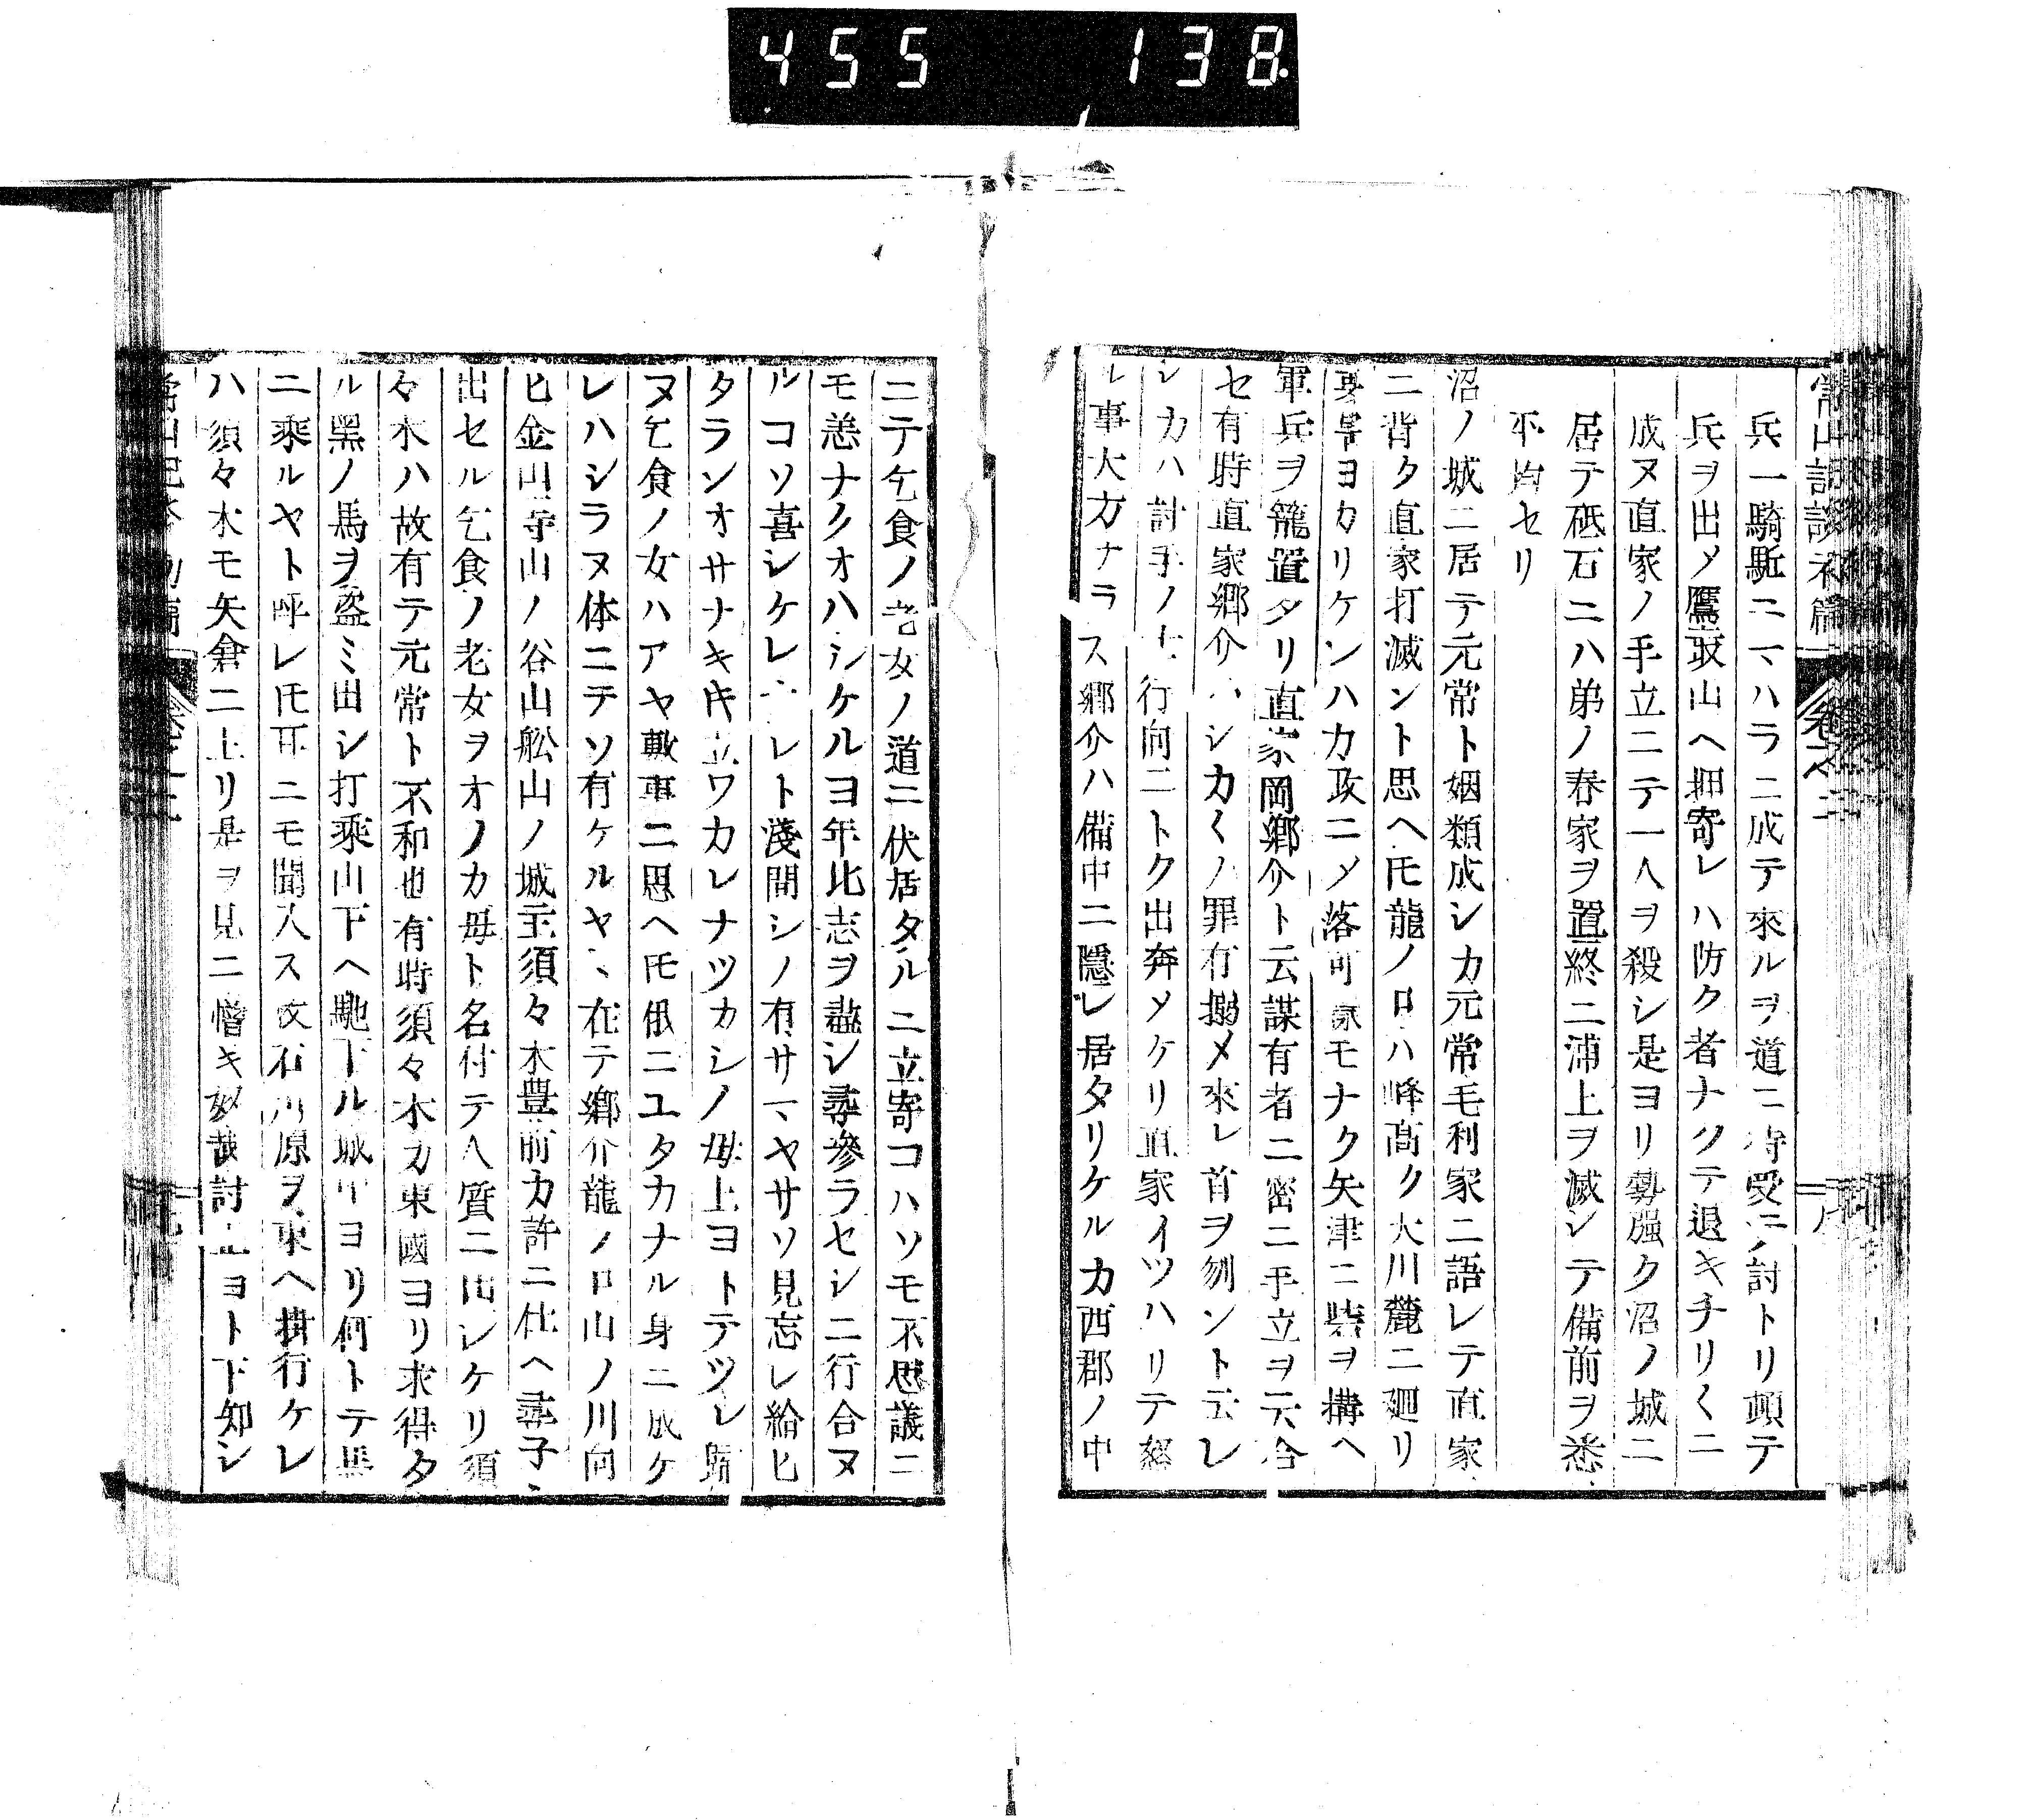 455 138
常山記談初篇 卷之二 八
兵一騎駈ニマハラニ成テ來ルヲ道ニ待受テ討トリ頓テ
兵ヲ出メ鷹取山ヘ押寄レハ防ク者ナクテ退キチリ〱ニ
成ヌ直家ノ手立ニテ一人ヲ殺シ是ヨリ勢强ク沼ノ城ニ
居テ砥石ニハ弟ノ春家ヲ置終ニ浦上ヲ滅シテ備前ヲ悉
不殘セリ
沼ノ城ニ居テ元常ト姻類成シカ元常毛利家ニ語レテ直家
ニ背ク直家打滅ント思ヘ𪜈龍ノ口ハ峰髙ク大川麓ニ廻リ
要害ヨカリケンハ力攻ニメ落可樣モナク矢津ニ砦ヲ搆ヘ
軍兵ヲ籠置タリ直家岡郷介ト云謀有者ニ密ニ手立ヲ云合
セ有時直家郷介ハシカ〱ノ罪有搦メ來レ首ヲ刎ント云レ
シカハ討手ノ士行向ニトク出奔メケリ直家イツハリテ怒
ル事大方ナラス郷介ハ備中ニ隱レ居タリケルカ西郡ノ中
ニテ乞食ノ老女ノ道ニ伏居タルニ立寄コハソモ不思議ニ
モ恙ナクオハシケルヨ年比志ヲ盡シ尋參ラセシニ行合ヌ
ルコソ喜シケレコレト淺間シノ有サマヤサソ見忘レ給ヒ
タランオサナキ時立ワカレナツカシノ母上ヨトテツレ歸
ヌ乞食ノ女ハアヤ敷事ニ思ヘ𪜈俄ニユタカナル身ニ成ケ
レハシラヌ体ニテソ有ケルヤヽ在テ郷介龍ノ口山ノ川向
ヒ金山寺山ノ谷山舩山ノ城主須々木豊前カ許ニ仕ヘ尋子
出セル乞食ノ老女ヲオノカ母ト名付テ人質ニ出シケリ須
々木ハ故有テ元常ト不和也有時須々木カ東國ヨリ求得タ
ル黑ノ馬ヲ盗ミ出シ打乘山下ヘ馳下ル城中ヨリ何トテ馬
ニ乘ルヤト呼レ𪜈耳ニモ聞入ス放石川原ヲ東ヘ掛行ケレ
ハ須々木モ矢倉ニ上リ是ヲ見ニ憎キ奴哉討止ヨト下知シ